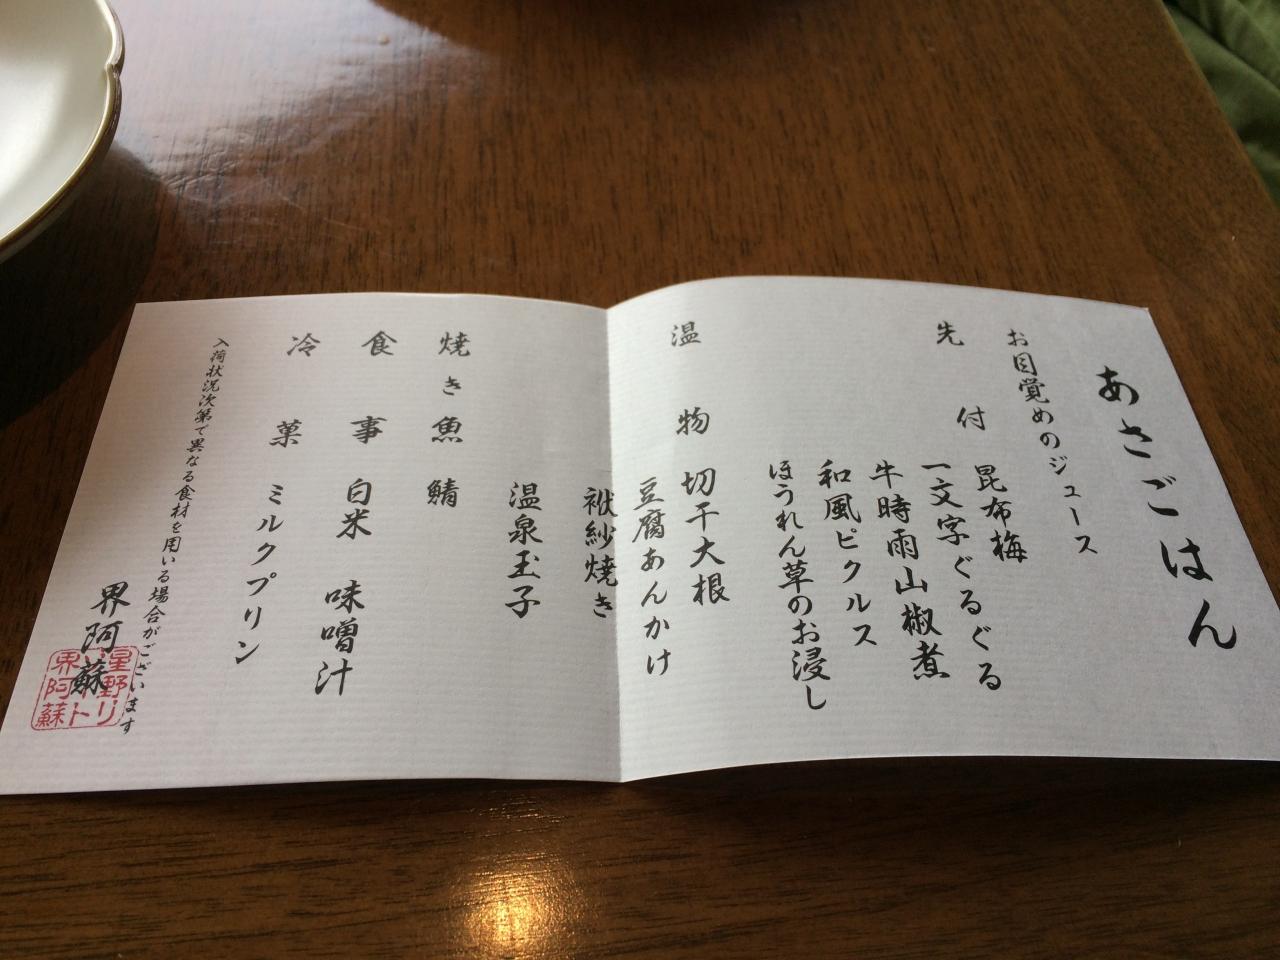 あさごはん
お目覚めのジュース
先付 昆布梅
一文字ぐるぐる
牛時雨山椒煮
和風ピクルス
ほうれん草のお浸し
温物 切干大根
豆腐あんかけ
袱紗焼き
温泉玉子
焼き魚 鯖
食事 白米 味噌汁
冷菓 ミルクプリン
入荷状況次第で異なる食材を用いる場合がございます
界阿蘇
星野リ
ゾート
界阿蘇